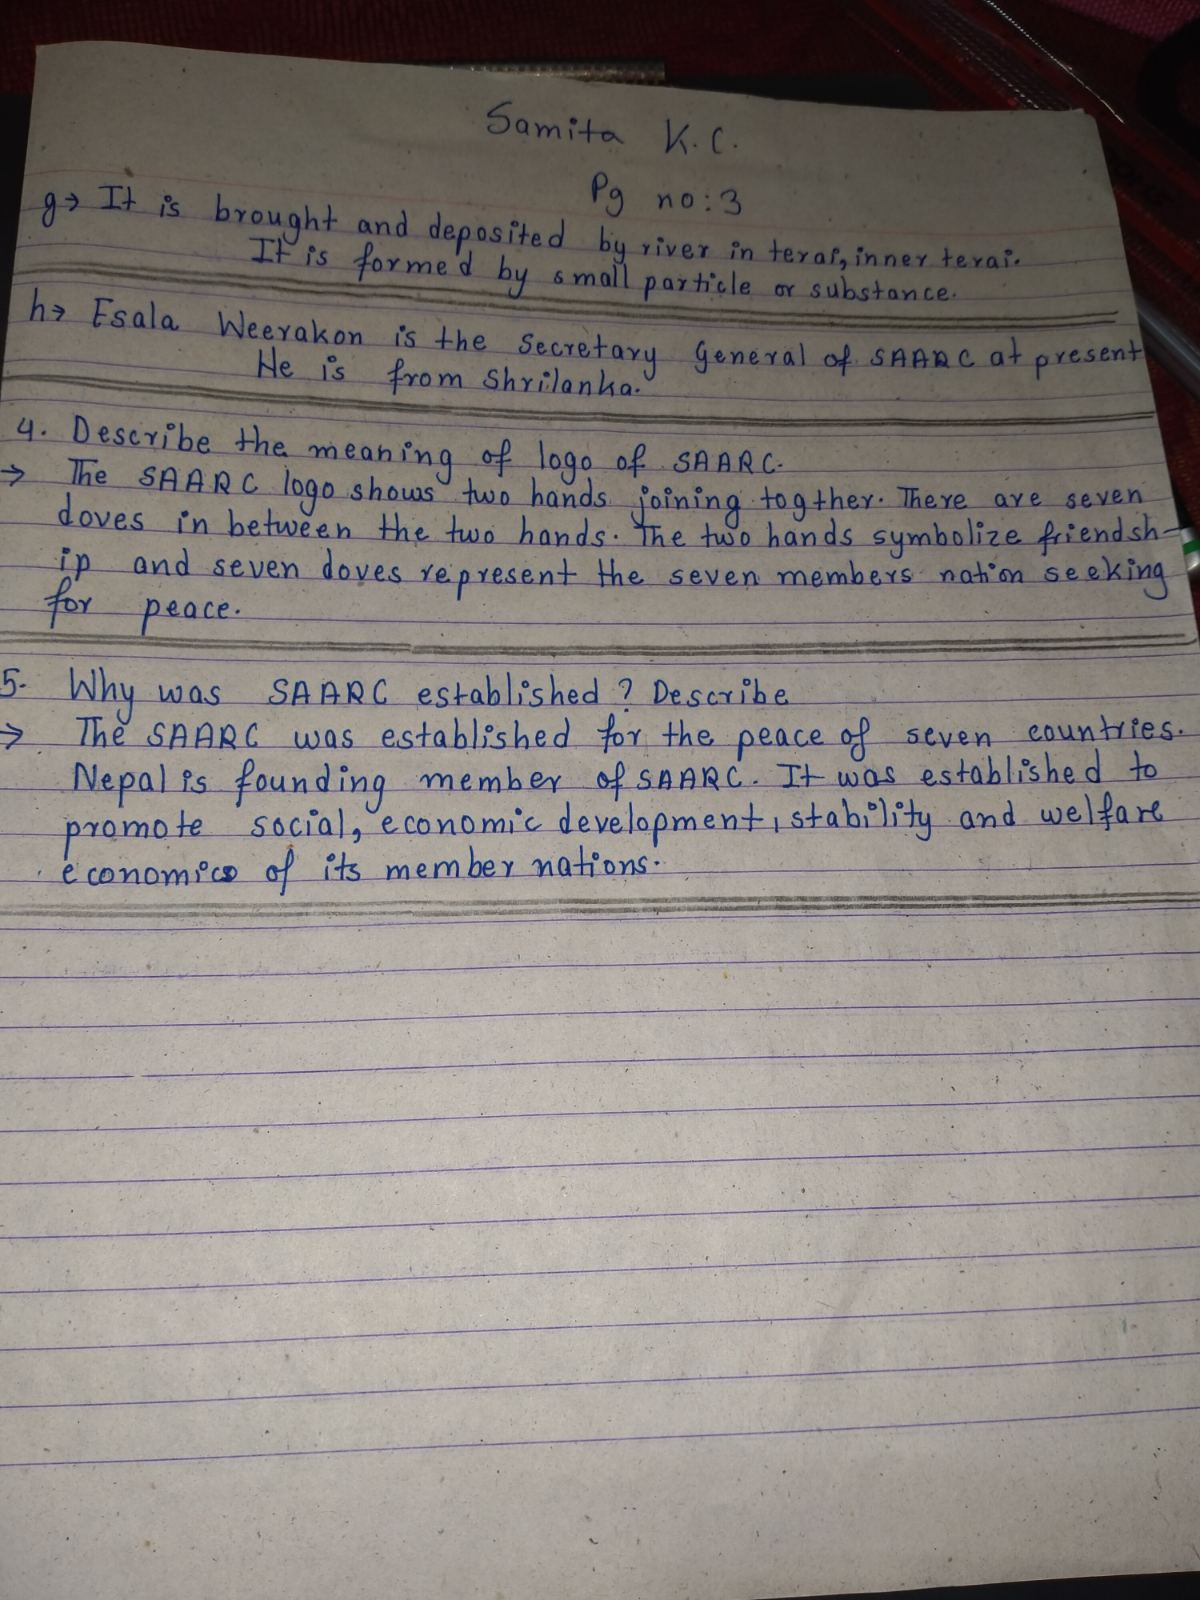 Samita K.C.
Pg no:3
g→ It is brought and deposited by river in terai, inner terai.
It is formed by small particle or substance.
h→ Esala Weerakon is the Secretary General of SAARC at present
He is from Shrilanka.
4. Describe the meaning of logo of SAARC.
→ The SAARC logo shows two hands joining togther. There are seven
doves in between the two hands. The two hands symbolize friendsh-
ip and seven doves represent the seven members nation seeking
for peace.
5. Why was SAARC established? Describe
→ The SAARC was established for the peace of seven countries.
Nepal is founding member of SAARC. It was established to
promote social, economic development, stability and welfare
economics of its member nations.